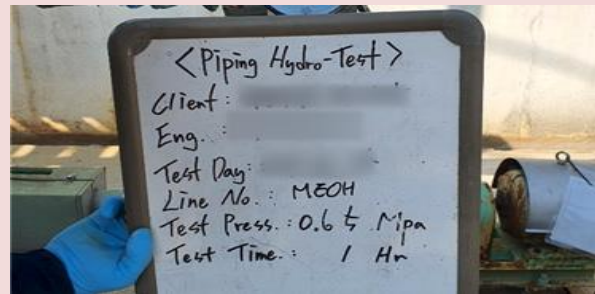 <Piping Hydro-Test>
Client :
Eng. :
Test Day:
Line No. : MEOH
Test Press. : 0.65 Mpa
Test Time. : 1 Hr